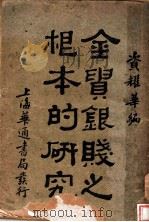 資耀華編
金貴銀賤之
根本的研究
上海華通書局發行